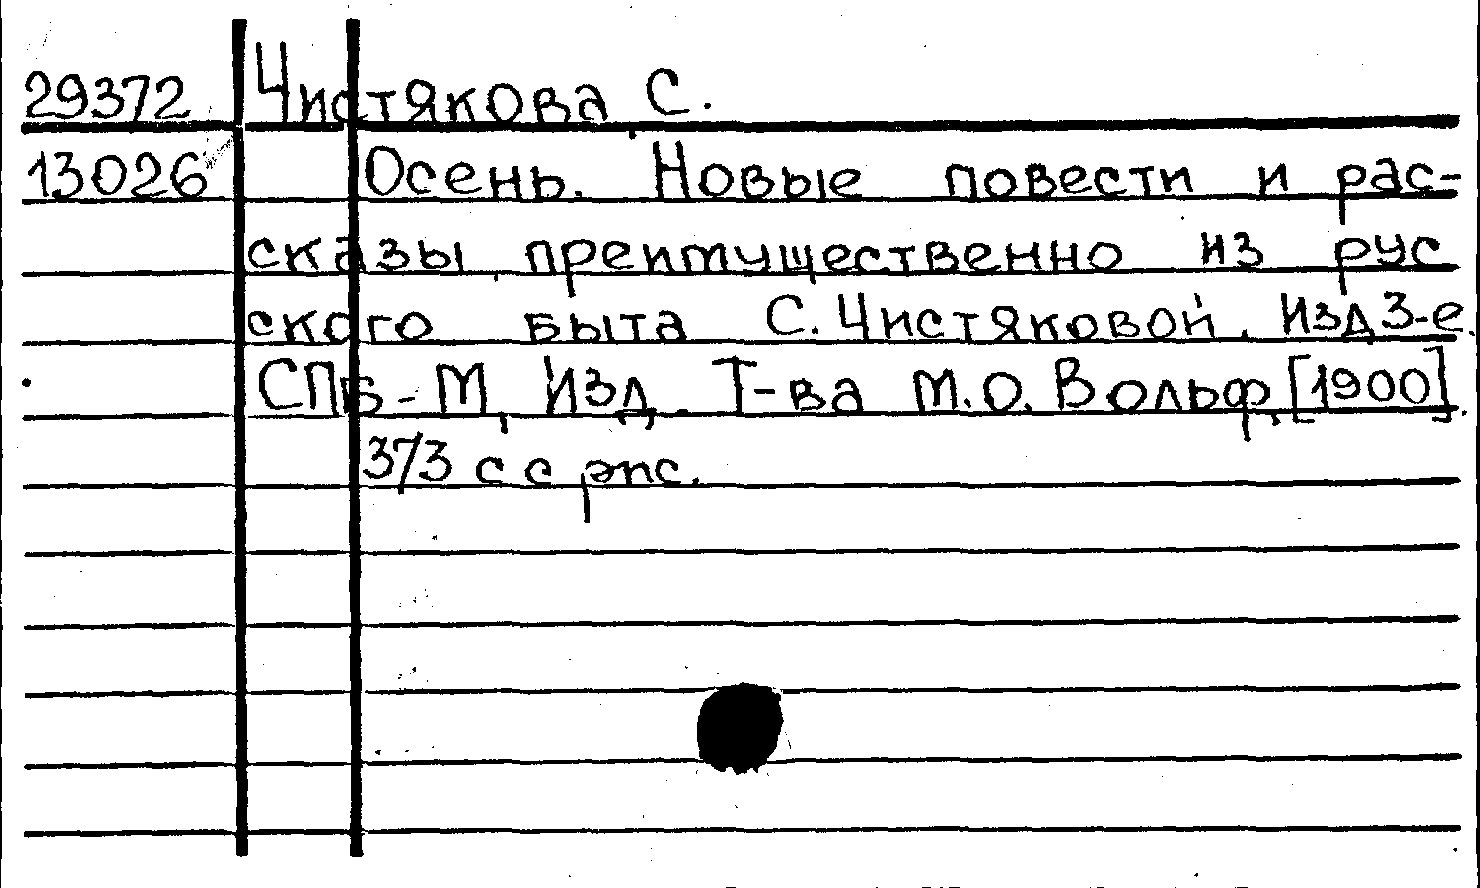 29372 Чистякова, С.
13026 Осень. Новые повести и рас-
сказы, преимущественно из рус
ского быта С. Чистяковой. Изд 3-е.
СПб-М, Изд. Т-ва М.О. Вольф, [1900].
373 с с рис.